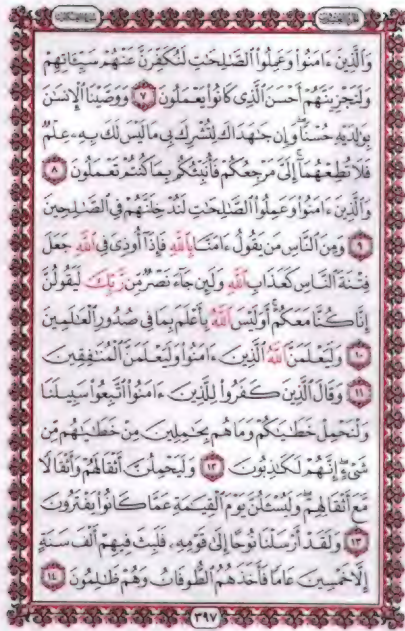 وَٱلَّذِينَ ءَامَنُوا۟ وَعَمِلُوا۟ ٱلصَّٰلِحَٰتِ لَنُكَفِّرَنَّ عَنْهُمْ سَيِّـَٔاتِهِمْ
وَلَنَجْزِيَنَّهُمْ أَحْسَنَ ٱلَّذِى كَانُوا۟ يَعْمَلُونَ ٧ وَوَصَّيْنَا ٱلْإِنسَٰنَ
بِوَٰلِدَيْهِ حُسْنًا ۖ وَإِن جَٰهَدَاكَ لِتُشْرِكَ بِى مَا لَيْسَ لَكَ بِهِۦ عِلْمٌ
فَلَا تُطِعْهُمَآ ۚ إِلَىَّ مَرْجِعُكُمْ فَأُنَبِّئُكُم بِمَا كُنتُمْ تَعْمَلُونَ ٨
وَٱلَّذِينَ ءَامَنُوا۟ وَعَمِلُوا۟ ٱلصَّٰلِحَٰتِ لَنُدْخِلَنَّهُمْ فِى ٱلصَّٰلِحِينَ
٩ وَمِنَ ٱلنَّاسِ مَن يَقُولُ ءَامَنَّا بِٱللَّهِ فَإِذَآ أُوذِىَ فِى ٱللَّهِ جَعَلَ
فِتْنَةَ ٱلنَّاسِ كَعَذَابِ ٱللَّهِ وَلَئِن جَآءَ نَصْرٌ مِّن رَّبِّكَ لَيَقُولُنَّ
إِنَّا كُنَّا مَعَكُمْ ۚ أَوَلَيْسَ ٱللَّهُ بِأَعْلَمَ بِمَا فِى صُدُورِ ٱلْعَٰلَمِينَ
١٠ وَلَيَعْلَمَنَّ ٱللَّهُ ٱلَّذِينَ ءَامَنُوا۟ وَلَيَعْلَمَنَّ ٱلْمُنَٰفِقِينَ
١١ وَقَالَ ٱلَّذِينَ كَفَرُوا۟ لِلَّذِينَ ءَامَنُوا۟ ٱتَّبِعُوا۟ سَبِيلَنَا
وَلْنَحْمِلْ خَطَٰيَٰكُمْ وَمَا هُم بِحَٰمِلِينَ مِنْ خَطَٰيَٰهُم مِّن
شَىْءٍ ۖ إِنَّهُمْ لَكَٰذِبُونَ ١٢ وَلَيَحْمِلُنَّ أَثْقَالَهُمْ وَأَثْقَالًا
مَّعَ أَثْقَالِهِمْ ۖ وَلَيُسْـَٔلُنَّ يَوْمَ ٱلْقِيَٰمَةِ عَمَّا كَانُوا۟ يَفْتَرُونَ
١٣ وَلَقَدْ أَرْسَلْنَا نُوحًا إِلَىٰ قَوْمِهِۦ فَلَبِثَ فِيهِمْ أَلْفَ سَنَةٍ
إِلَّا خَمْسِينَ عَامًا فَأَخَذَهُمُ ٱلطُّوفَانُ وَهُمْ ظَٰلِمُونَ ١٤
٣٩٧